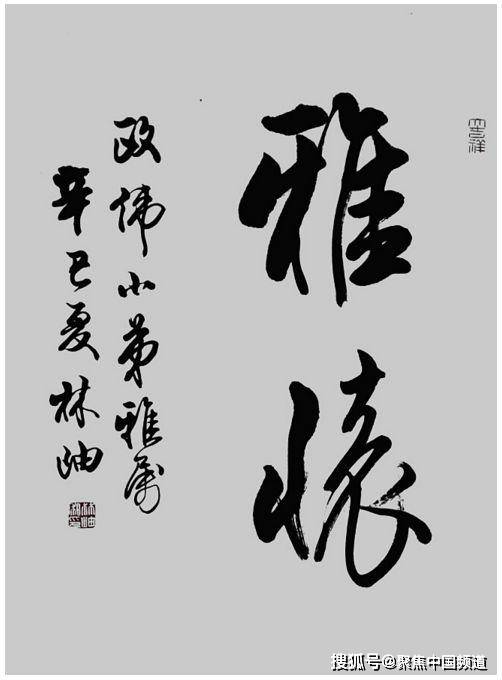 雅懷
政偉小弟雅属
辛巳夏林岫
搜狐号@聚焦中国频道